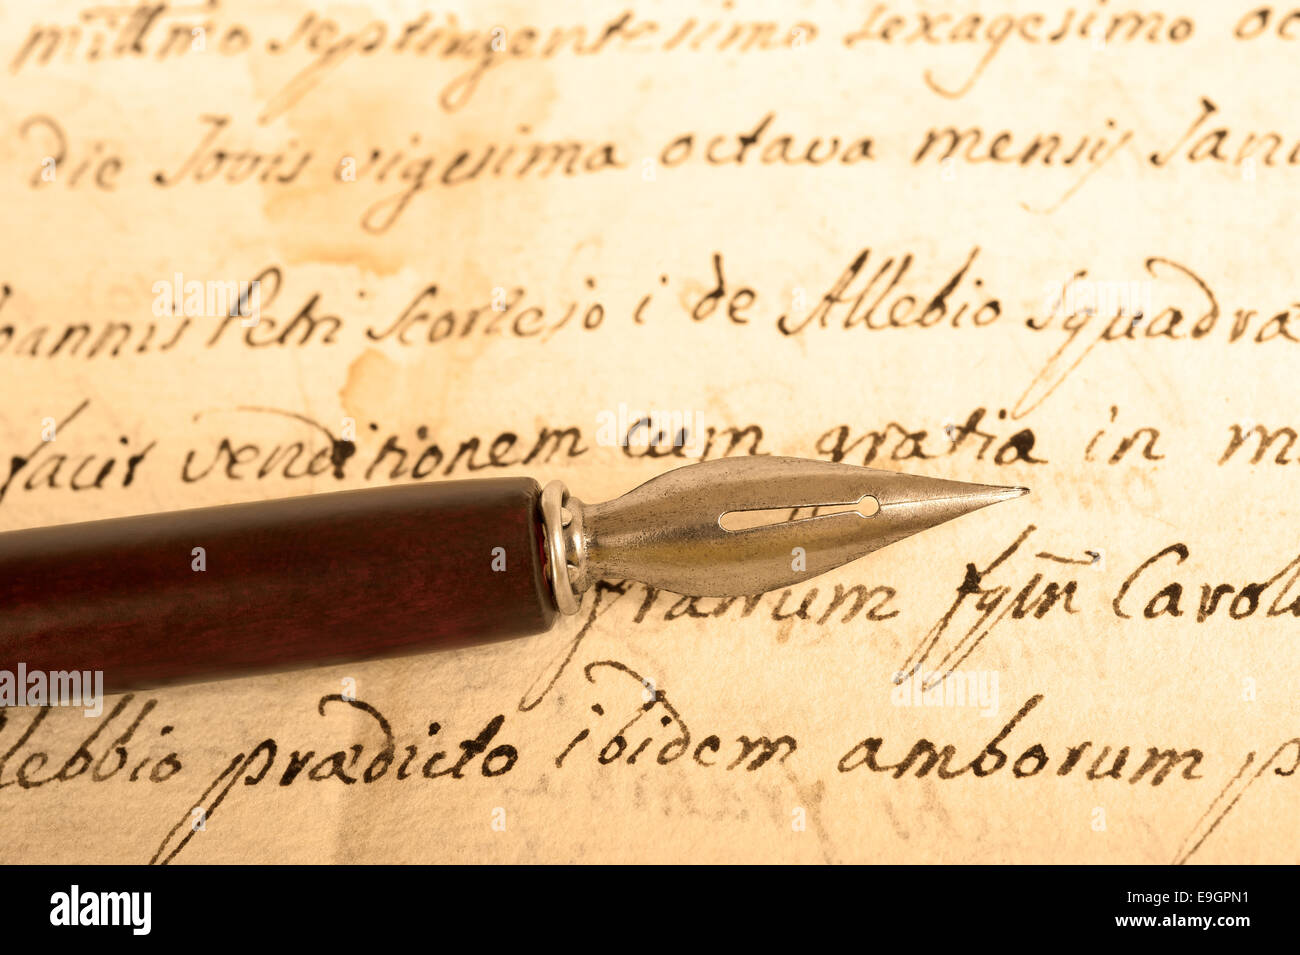 millmo septingentesimo sexagesimo oc
die Jovis vigesima octava mensij Janu
oannis Petri Scorteso i de Allebio squadræ
facit vendditionem cum gratia in m
framum fqm Carolu
llebbio prædicto ibidem amborum p
alamy
Image ID: E9GPN1
www.alamy.com